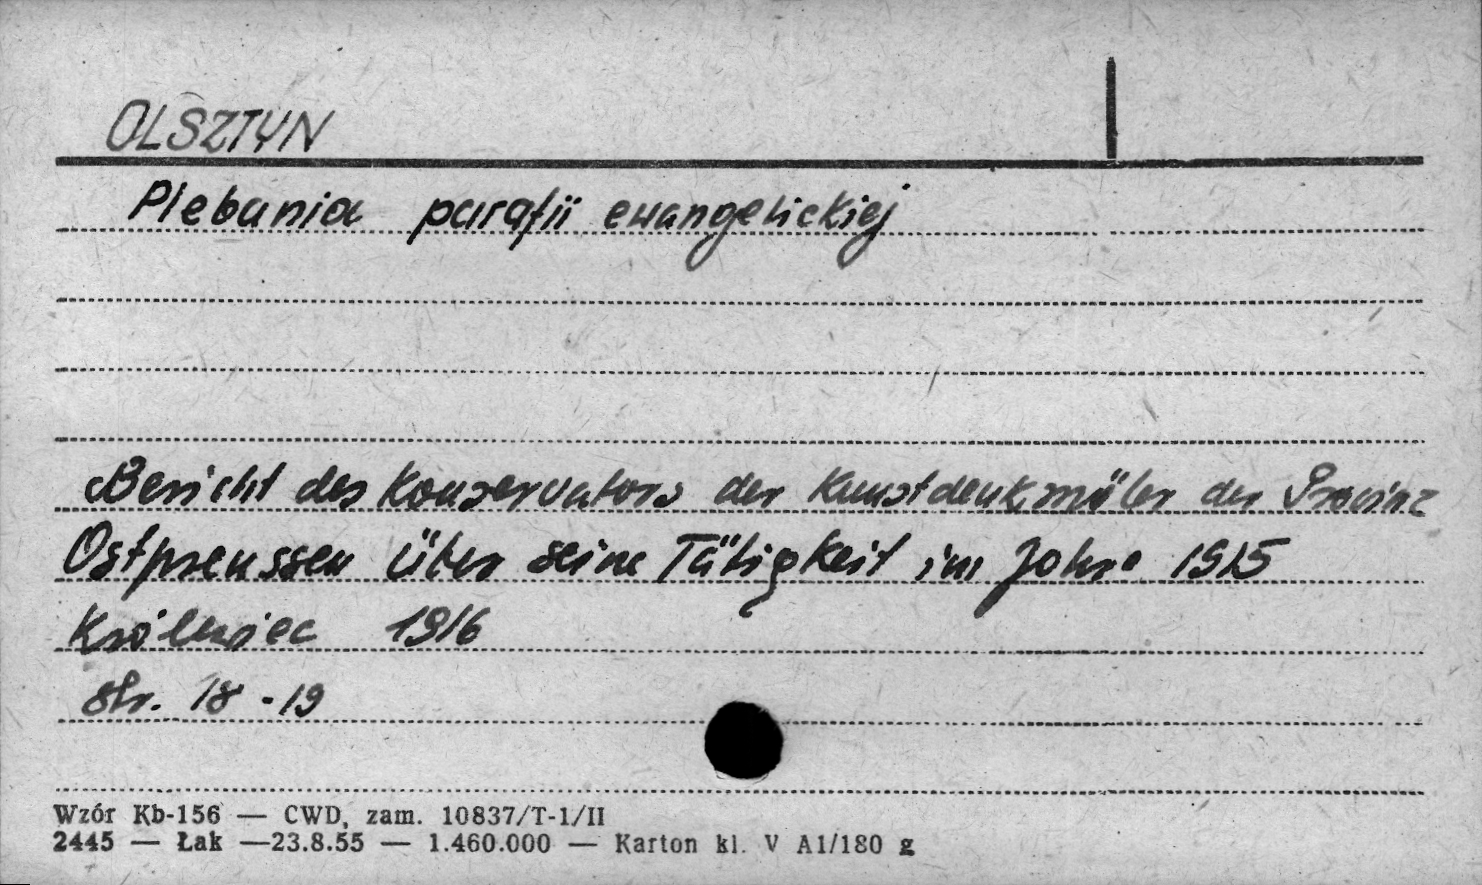 OLSZTYN
Plebania parafii ewangelickiej
Bericht des Konservators der Kunstdenkmäler der Provinz
Ostpreussen über seine Tätigkeit im Jahre 1915
Królewiec 1916
str. 18-19
Wzór Kb-156 — CWD, zam. 10837/T-1/II
2445 — Łak —23.8.55 — 1.460.000 — Karton kl. V A1/180 g